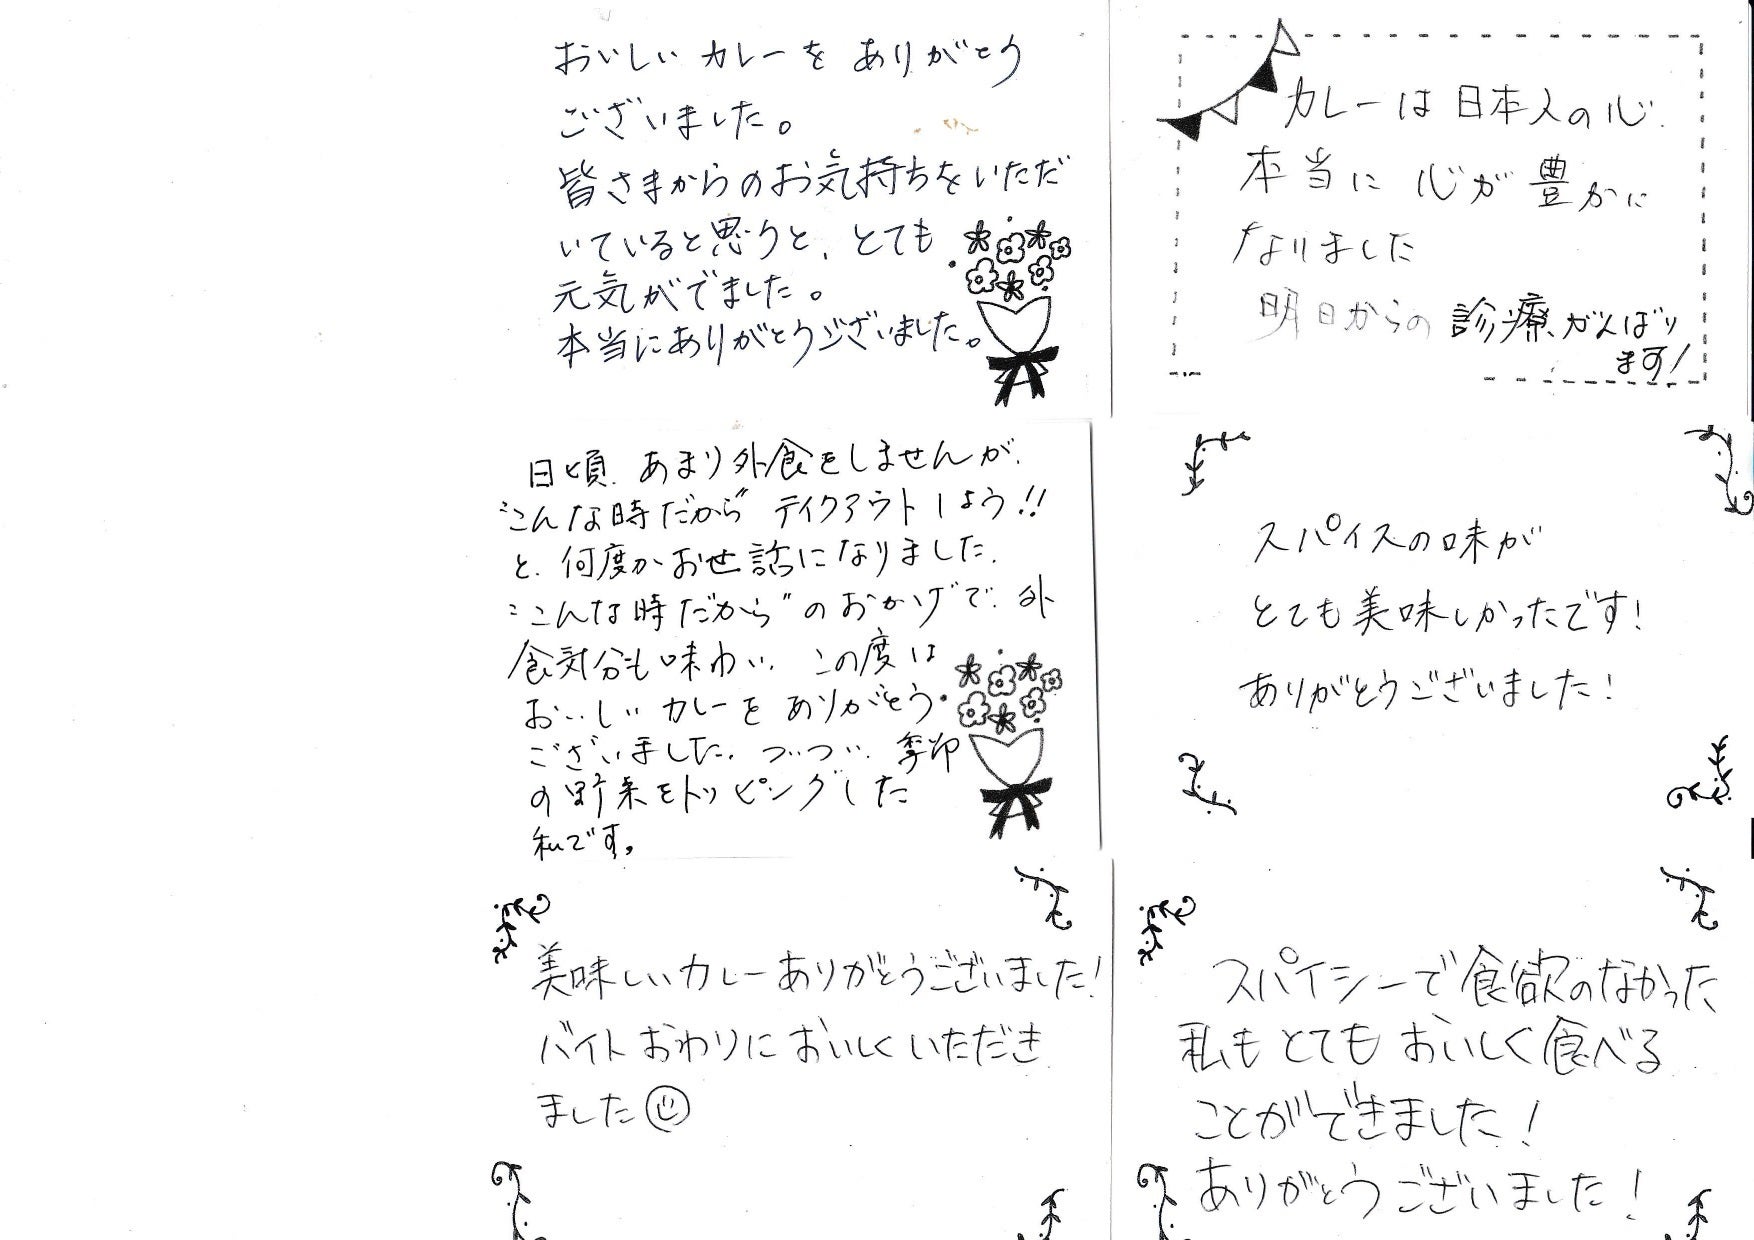 おいしいカレーを ありがとう
ございました。
皆さまからのお気持ちをいただ
いていると思うと、とても
元気がでました。
本当にありがとうございました。
カレーは日本人の心
本当に 心が豊かに
なりました
明日からの診療がんばり
ます!
日頃、あまり外食をしませんが、
"こんな時だから" テイクアウトしよう!!
と、何度かお世話になりました。
"こんな時だから"のおかげで、外
食気分も味わい、この度は
おいしいカレーを ありがとう
ございました。ついつい、季節
の野菜をトッピングした
私です。
スパイスの味が
とても美味しかったです!
ありがとうございました!
美味しいカレーありがとうございました!
バイトおわりにおいしくいただき
ました
スパイシーで食欲のなかった
私もとてもおいしく食べる
ことができました!
ありがとうございました!